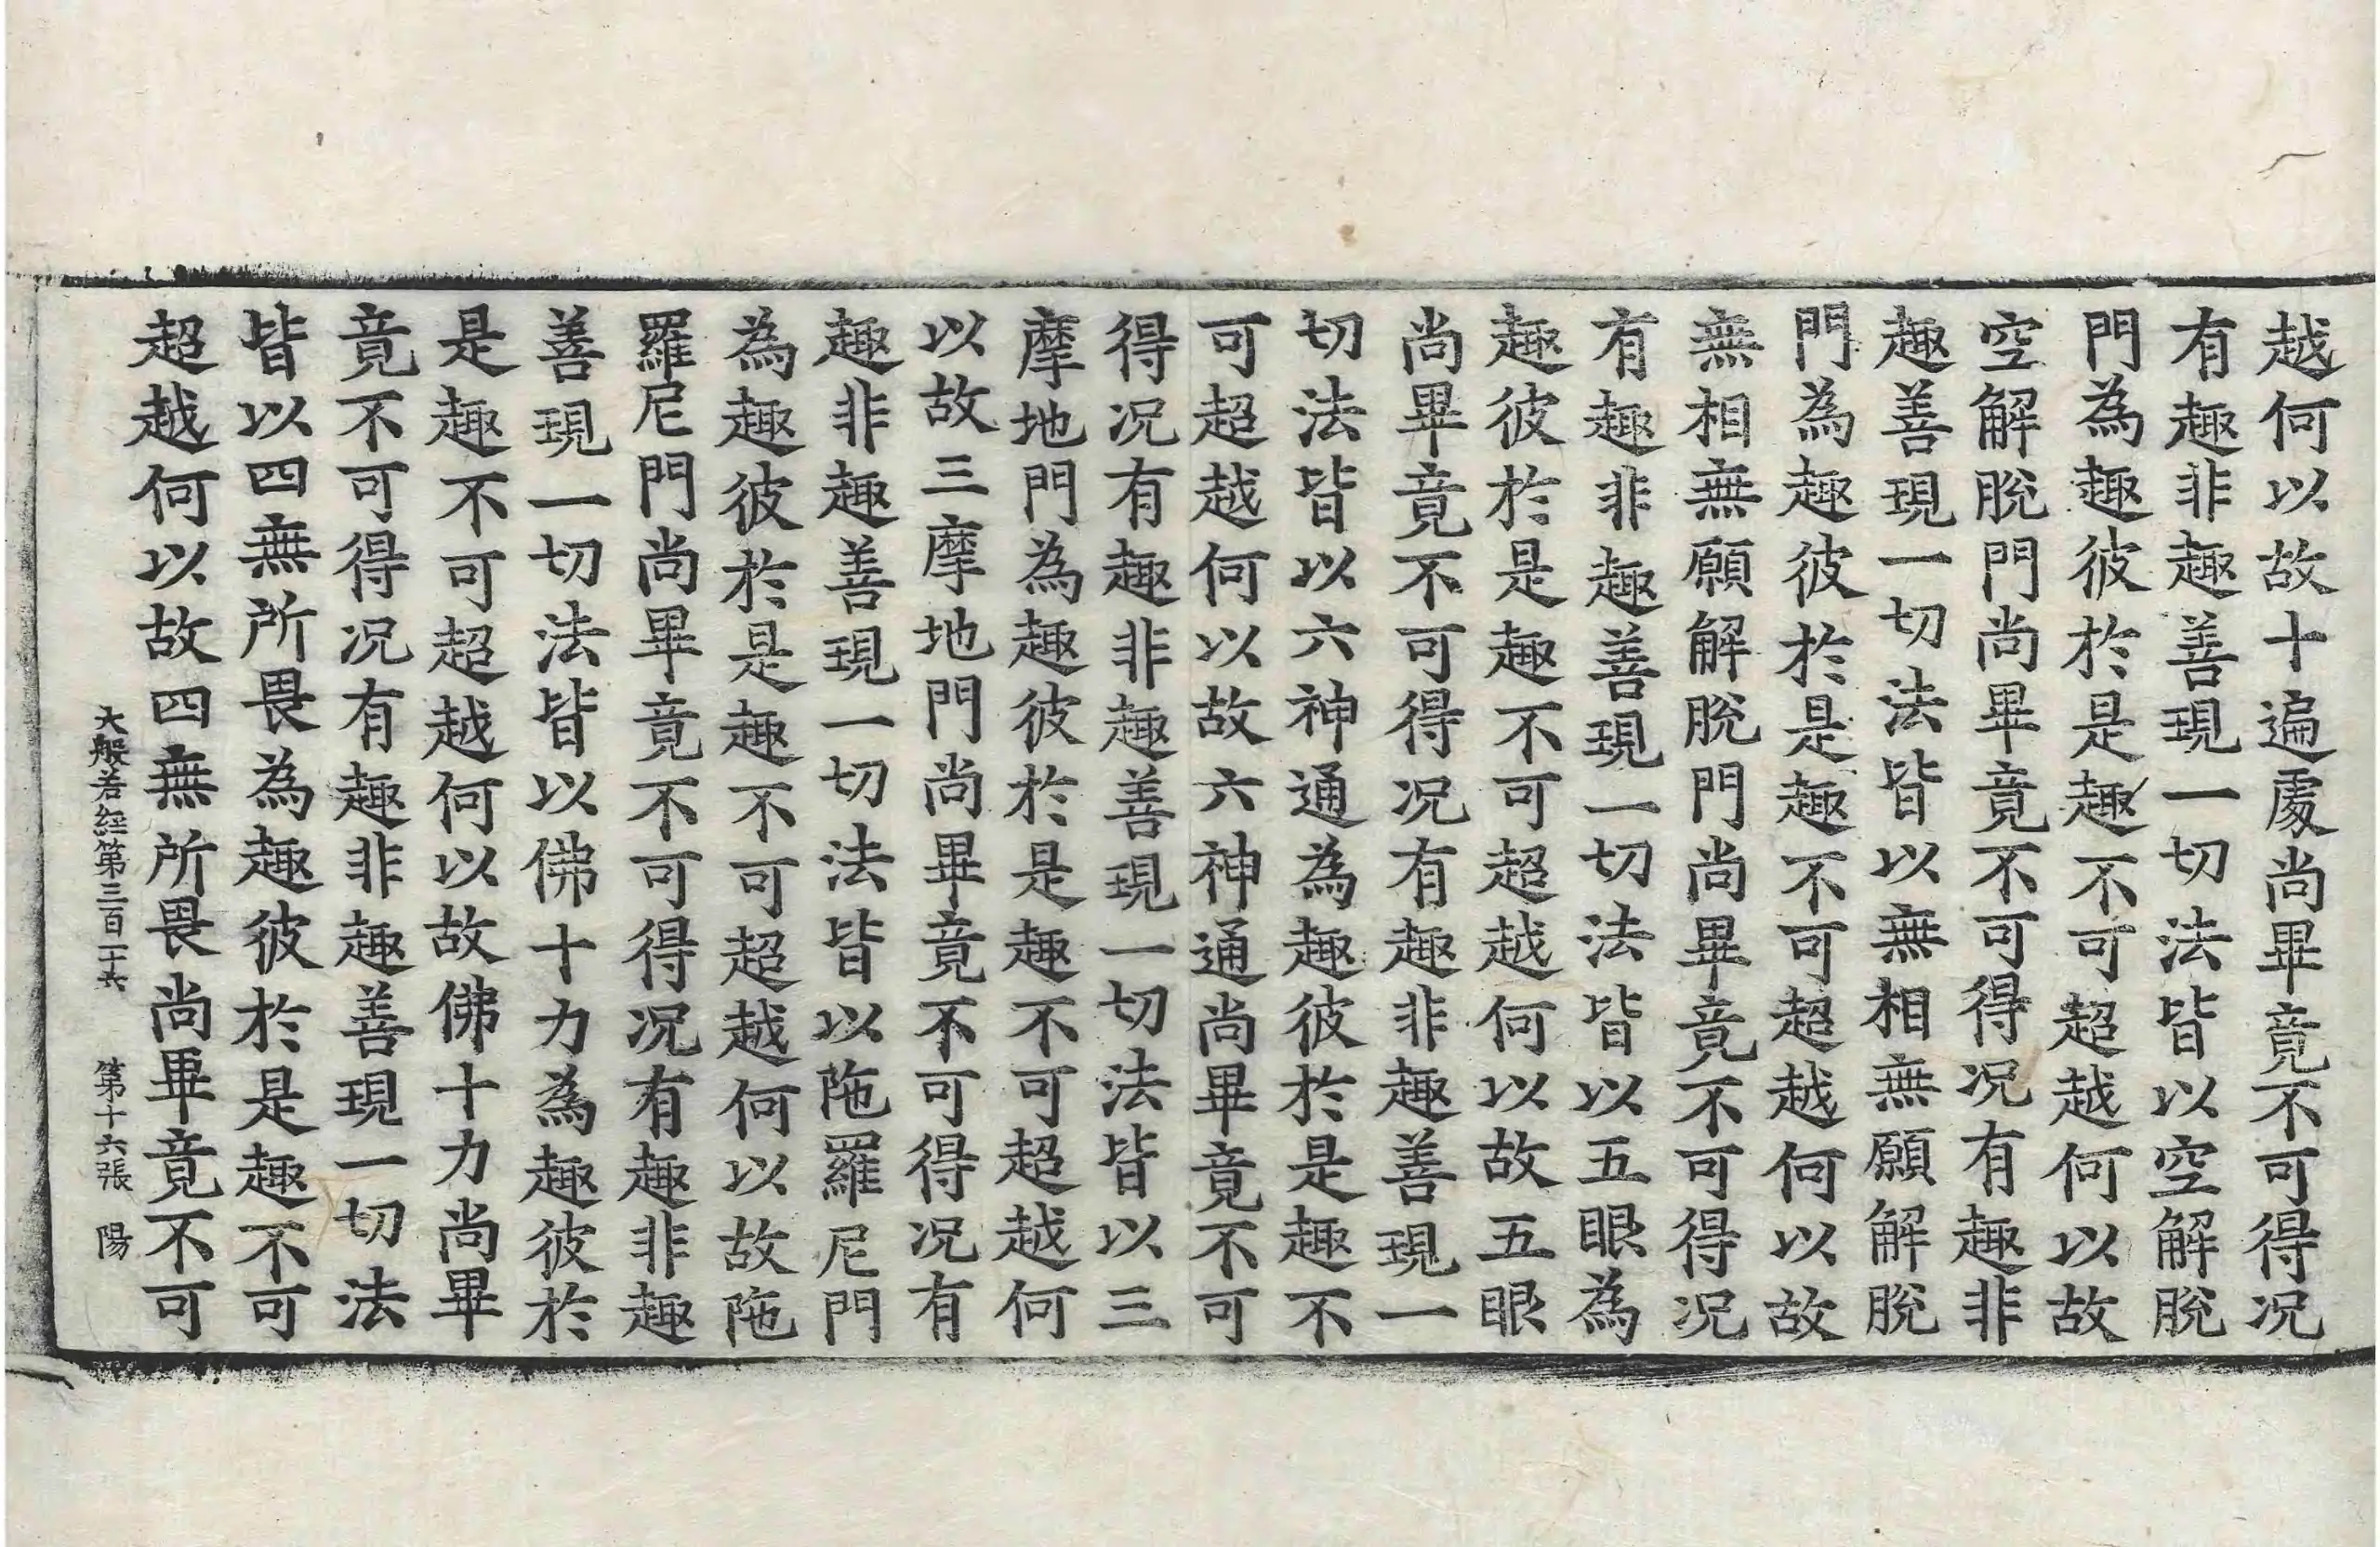 越何以故十遍處尚畢竟不可得况
有趣非趣善現一切法皆以空解脫
門為趣彼於是趣不可超越何以故
空解脫門尚畢竟不可得况有趣非
趣善現一切法皆以無相無願解脫
門為趣彼於是趣不可超越何以故
無相無願解脫門尚畢竟不可得况
有趣非趣善現一切法皆以五眼為
趣彼於是趣不可超越何以故五眼
尚畢竟不可得况有趣非趣善現一
切法皆以六神通為趣彼於是趣不
可超越何以故六神通尚畢竟不可
得况有趣非趣善現一切法皆以三
摩地門為趣彼於是趣不可超越何
以故三摩地門尚畢竟不可得况有
趣非趣善現一切法皆以陁羅尼門
為趣彼於是趣不可超越何以故陁
羅尼門尚畢竟不可得况有趣非趣
善現一切法皆以佛十力為趣彼於
是趣不可超越何以故佛十力尚畢
竟不可得况有趣非趣善現一切法
皆以四無所畏為趣彼於是趣不可
超越何以故四無所畏尚畢竟不可
大般若経第三百二十六 第十六張 陽